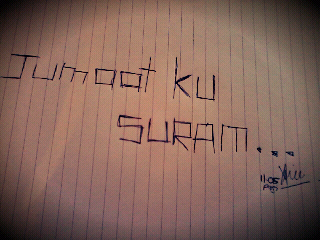 Jumaat ku
SURAM...
11.05